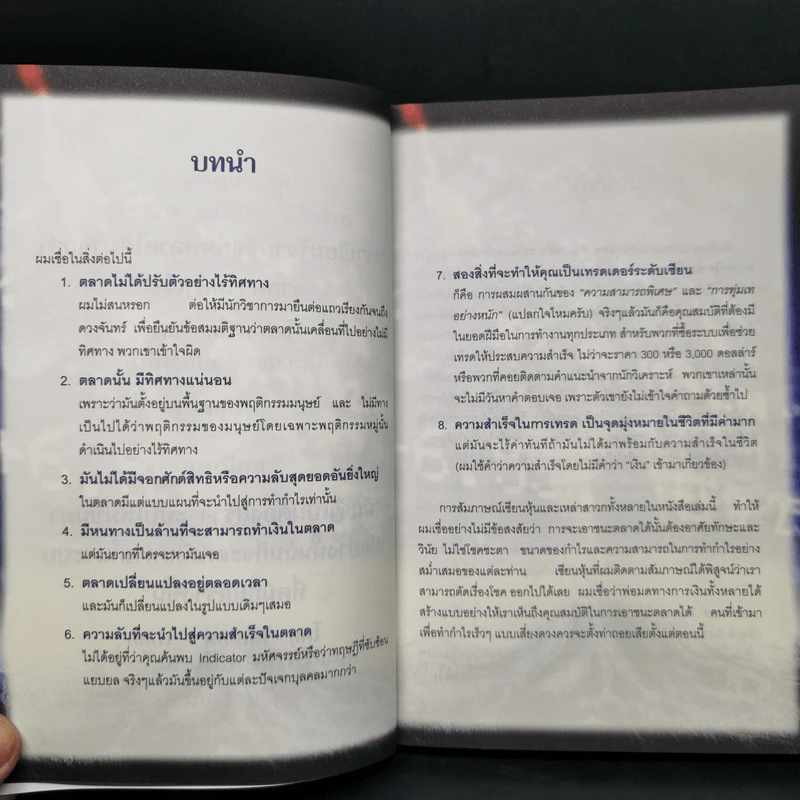 บทนำ
ผมเชื่อในสิ่งต่อไปนี้
1. ตลาดไม่ได้ปรับตัวอย่างไร้ทิศทาง
ผมไม่สนหรอก ต่อให้มีนักวิชาการมายืนต่อแถวเรียงกันจนถึง
ดวงจันทร์ เพื่อยืนยันข้อสมมติฐานว่าตลาดนั้นเคลื่อนที่ไปอย่างไม่มี
ทิศทาง พวกเขาเข้าใจผิด
2. ตลาดนั้น มีทิศทางแน่นอน
เพราะว่ามันตั้งอยู่บนพื้นฐานของพฤติกรรมมนุษย์ และ ไม่มีทาง
เป็นไปได้ว่าพฤติกรรมของมนุษย์โดยเฉพาะพฤติกรรมหมู่นั้น
ดำเนินไปอย่างไร้ทิศทาง
3. มันไม่ได้มีจอกศักดิ์สิทธิหรือความลับสุดยอดอันยิ่งใหญ่
ในตลาดมีแต่แบบแผนที่จะนำไปสู่การทำกำไรเท่านั้น
4. มีหนทางเป็นล้านที่จะสามารถทำเงินในตลาด
แต่มันยากที่ใครจะหามันเจอ
5. ตลาดเปลี่ยนแปลงอยู่ตลอดเวลา
และมันก็เปลี่ยนแปลงในรูปแบบเดิมๆเสมอ
6. ความลับที่จะนำไปสู่ความสำเร็จในตลาด
ไม่ได้อยู่ที่ว่าคุณค้นพบ Indicator มหัศจรรย์หรือว่าทฤษฎีที่ซับซ้อน
แยบยล จริงๆแล้วมันขึ้นอยู่กับแต่ละปัจเจกบุคคลมากกว่า
7. สองสิ่งที่จะทำให้คุณเป็นเทรดเดอร์ระดับเซียน
ก็คือ การผสมผสานกันของ "ความสามารถพิเศษ" และ "การทุ่มเท
อย่างหนัก" (แปลกใจไหมครับ) จริงๆแล้วมันก็คือคุณสมบัติที่ต้องมี
ในยอดฝีมือในการทำงานทุกประเภท สำหรับพวกที่ซื้อระบบเพื่อช่วย
เทรดให้ประสบความสำเร็จ ไม่ว่าจะราคา 300 หรือ 3,000 ดอลล่าร์
หรือพวกที่คอยติดตามคำแนะนำจากนักวิเคราะห์ พวกเขาเหล่านั้น
จะไม่มีวันหาคำตอบเจอ เพราะตัวเขายังไม่เข้าใจคำถามด้วยซ้ำไป
8. ความสำเร็จในการเทรด เป็นจุดมุ่งหมายในชีวิตที่มีค่ามาก
แต่มันจะไร้ค่าทันทีถ้ามันไม่ได้มาพร้อมกับความสำเร็จในชีวิต
(ผมใช้คำว่าความสำเร็จโดยไม่มีคำว่า "เงิน" เข้ามาเกี่ยวข้อง)
การสัมภาษณ์เซียนหุ้นและเหล่าสาวกทั้งหลายในหนังสือเล่มนี้ ทำให้
ผมเชื่ออย่างไม่มีข้อสงสัยว่า การจะเอาชนะตลาดได้นั้นต้องอาศัยทักษะและ
วินัย ไม่ใช่โชคชะตา ขนาดของกำไรและความสามารถในการทำกำไรอย่าง
สม่ำเสมอของแต่ละท่าน เซียนหุ้นที่ผมติดตามสัมภาษณ์ได้พิสูจน์ว่าเรา
สามารถตัดเรื่องโชค ออกไปได้เลย ผมเชื่อว่าพ่อมดทางการเงินทั้งหลายได้
สร้างแบบอย่างให้เราเห็นถึงคุณสมบัติในการเอาชนะตลาดได้ คนที่เข้ามา
เพื่อทำกำไรเร็วๆ แบบเสี่ยงดวงควรจะตั้งท่าถอยเสียตั้งแต่ตอนนี้